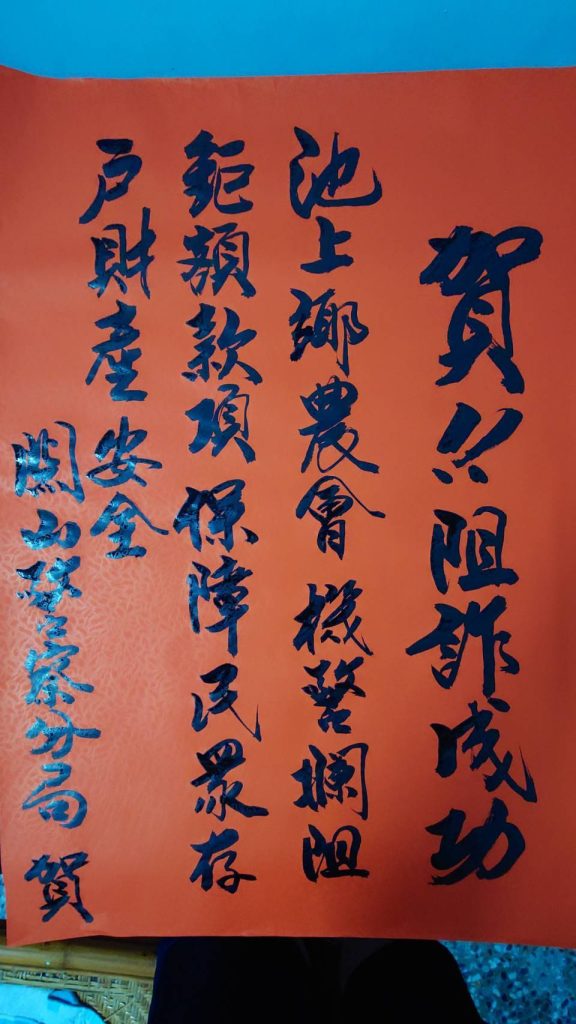 賀!!阻詐成功
池上鄉農會機警攔阻
鉅額款項保障民眾存
戶財產安全
關山警察分局 賀